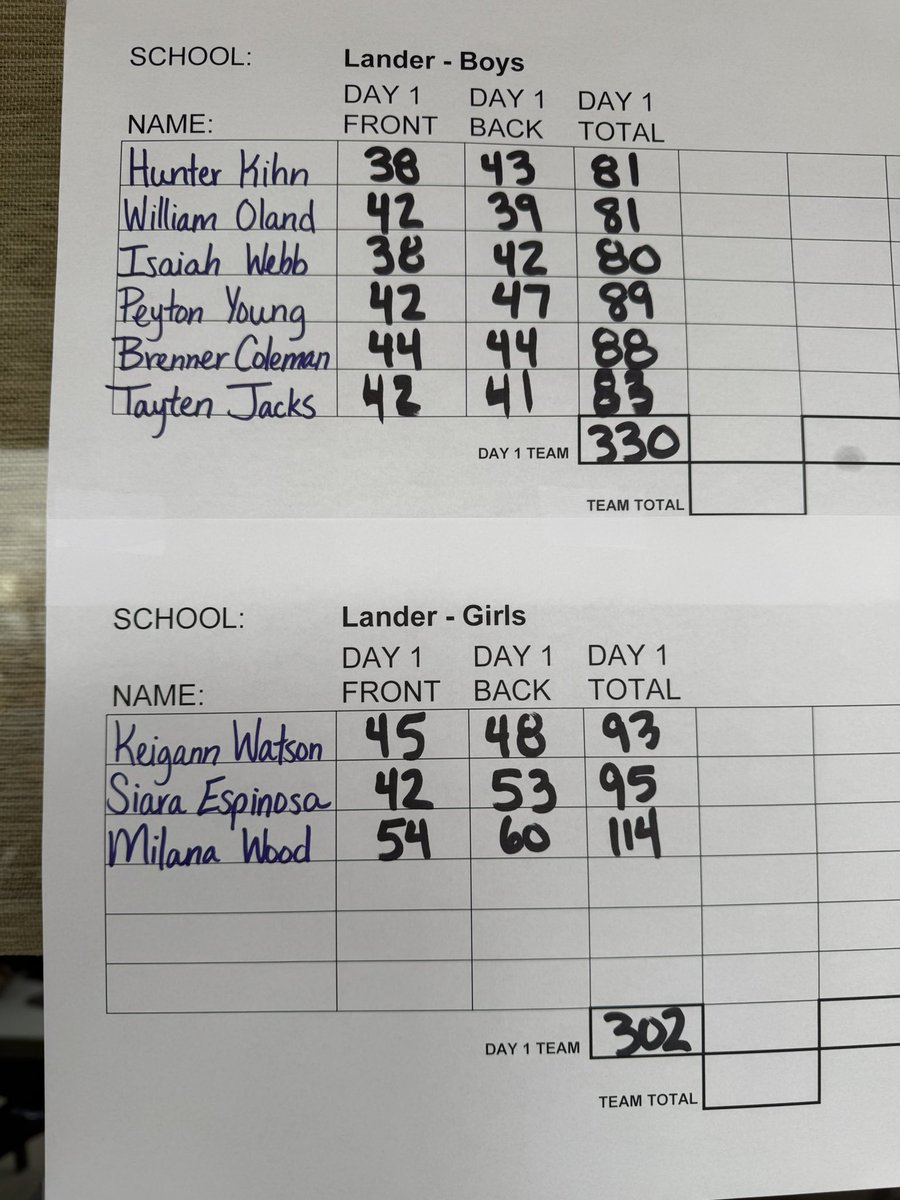 SCHOOL: Lander - Boys
DAY 1 DAY 1 DAY 1
NAME: FRONT BACK TOTAL
Hunter Kihn 38 43 81
William Oland 42 39 81
Isaiah Webb 38 42 80
Peyton Young 42 47 89
Brenner Coleman 44 44 88
Tayten Jacks 42 41 83
DAY 1 TEAM 330
TEAM TOTAL
SCHOOL: Lander - Girls
DAY 1 DAY 1 DAY 1
NAME: FRONT BACK TOTAL
Keigann Watson 45 48 93
Siara Espinosa 42 53 95
Milana Wood 54 60 114
DAY 1 TEAM 302
TEAM TOTAL